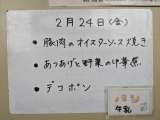 2月24日(金)
• 豚肉のオイスターソース焼き
• あつあげと野菜の中華煮
• デコポン
牛乳